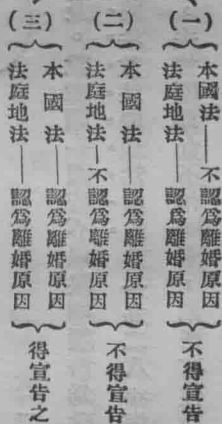 (一)
本國法——不認爲離婚原因
法庭地法——認爲離婚原因
不得宣告
(二)
本國法——認爲離婚原因
法庭地法——不認爲離婚原因
不得宣告
(三)
本國法——認爲離婚原因
法庭地法——認爲離婚原因
得宣告之